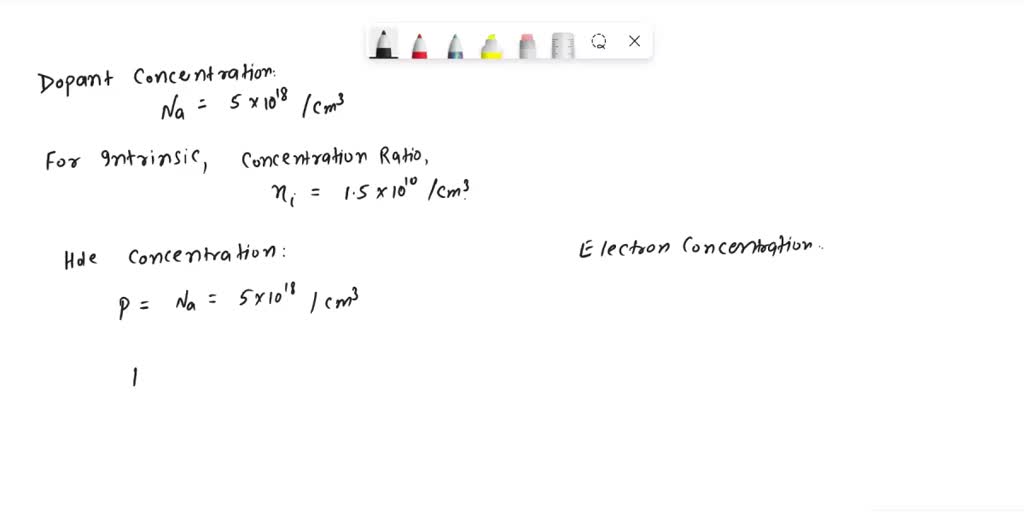 Dopant Concentration:
Na = 5 × 10¹⁸ /cm³
For Intrinsic, Concentration Ratio,
nᵢ = 1.5 × 10¹⁰ /cm³
Hole Concentration:
P = Na = 5 × 10¹⁸ /cm³
Electron Concentration.